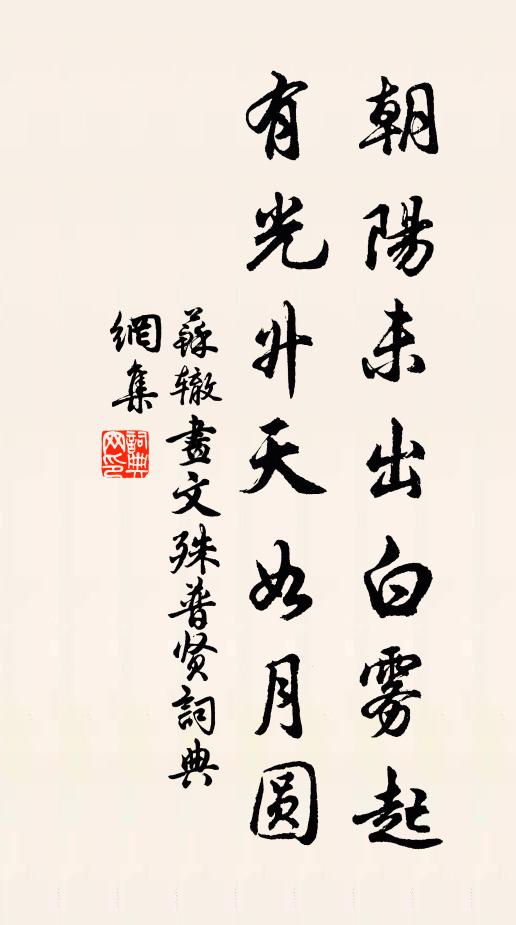 朝陽未出白雾起
有光升天如月圆
蘇辙畫文殊普贤詞典
網集
詞典網印